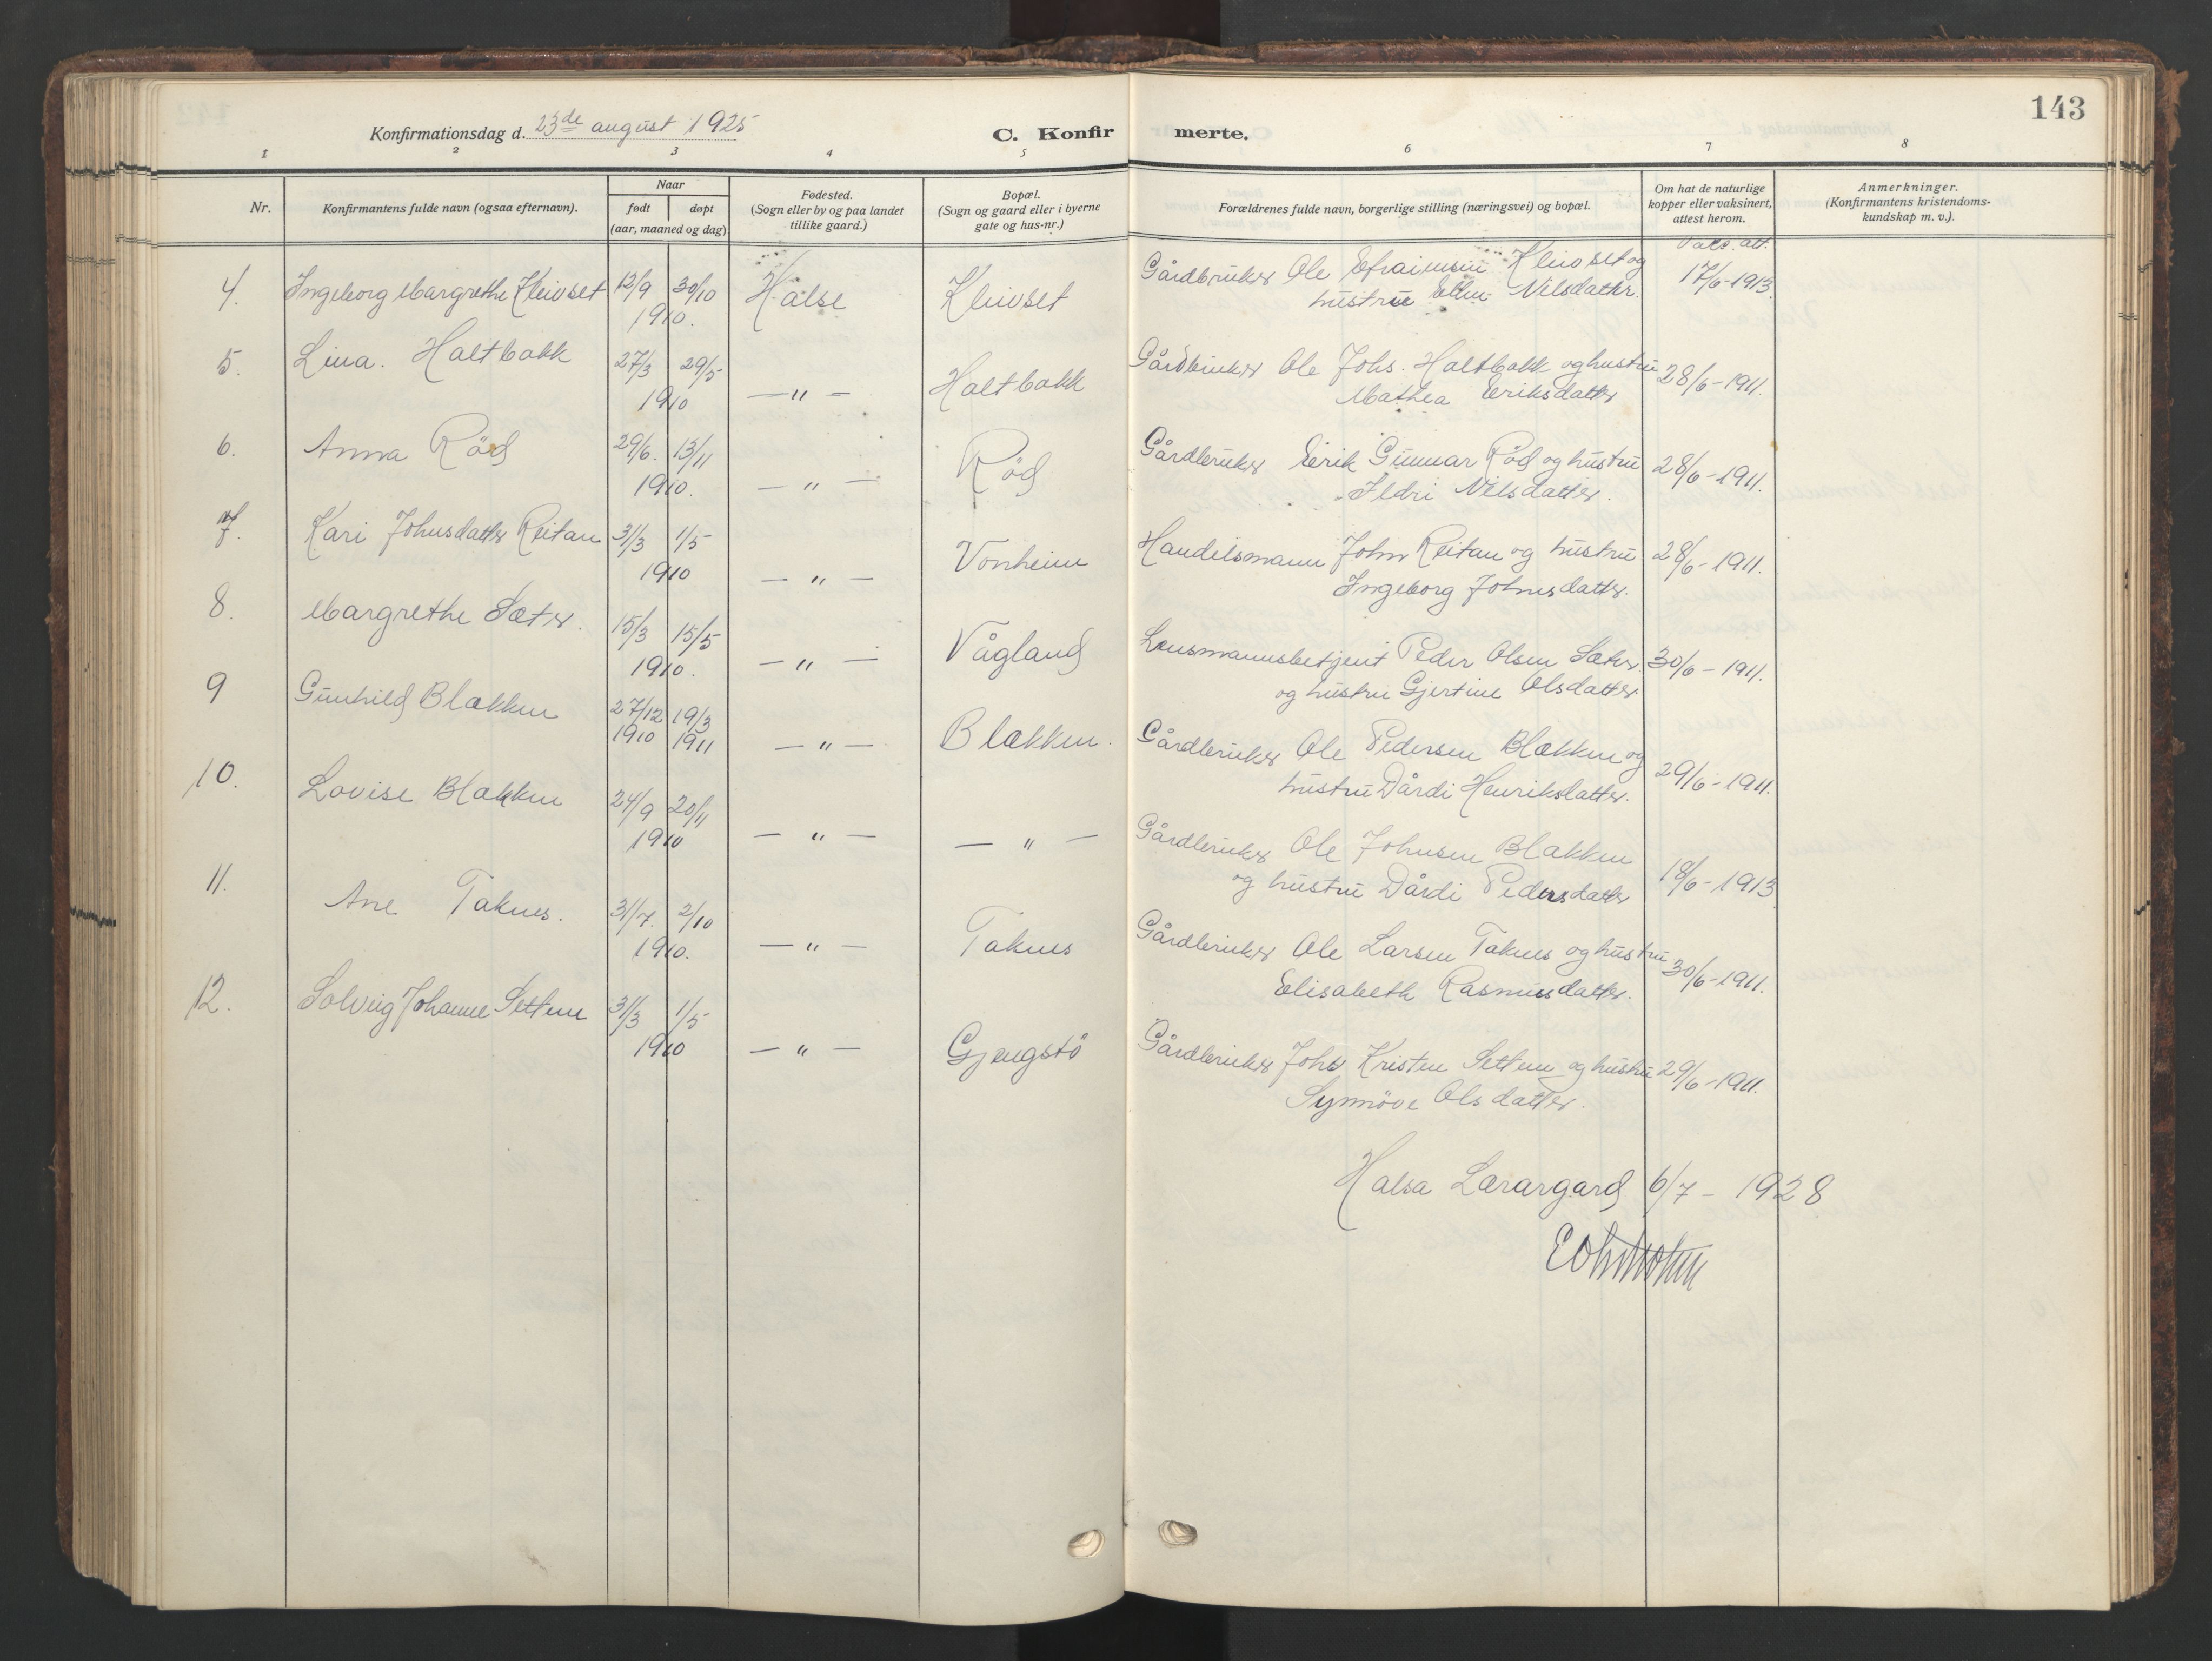 143
Konfirmationsdag d. 23de august 1925
C. Konfirmerte.
1 2 3 4 5 6 7 8
Nr.
Konfirmantens fulde navn (ogsaa efternavn).
Naar
født døpt
(aar, maaned og dag)
Fødested.
(Sogn eller by og paa landet
tillike gaard.)
Bopæl.
(Sogn og gaard eller i byerne
gate og hus-nr.)
Forældrenes fulde navn, borgerlige stilling (næringsvei) og bopæl.
Om hat de naturlige
kopper eller vaksinert,
attest herom.
Anmerkninger.
(Konfirmantens kristendoms-
kundskap m. v.).
Vacc. att.
4. Ingeborg Margrethe Kleivset 12/9 30/10 Halse Kleivset Gårdbruker Ole Efraimsen Kleivset og 17/6-1913
1910. hustru Ellen Nilsdatter.
5. Lina. Haltbakk 27/3 29/5 — " — Haltbakk Gårdbruker Ole Johs. Haltbakk og hustru 28/6-1911.
1910 Mathea Eriksdatter
6. Anna Röd 29/6. 13/11 — " — Röd Gårdbruker Eirik Gunnar Röd og hustru 28/6-1911.
1910. Ildri Nilsdatter.
7. Kari Johnsdatter Reitan 31/3 1/5 — " — Vonheim Handelsmann John Reitan og hustru 28/6-1911.
1910 Ingeborg Johnsdatter.
8. Margrethe Sæter. 15/3 15/5 — " — Vågland Lensmannsbetjent Peder Olsen Sæter 30/6-1911.
1910. og hustru Gjertine Olsdatter.
9 Gunhild Blakken 27/12 19/3 — " — Blækken. Gårdbruker Ole Pedersen Blækken og 29/6-1911.
1910 1911 hustru Dårdi Henriksdatter.
10. Lovise Blakken 24/9 20/11 — " — — " — Gårdbruker Ole Johnsen Blakken 18/6-1913
1910 og hustru Dårdi Pedersdatter
11. Ane Taknes. 31/7. 2/10 — " — Taknes Gårdbruker Ole Larsen Taknes og hustru 30/6-1911.
1910. Elisabeth Rasmusdatter.
12. Solveig Johanne Settem 31/3 1/5 — " — Gjengstö Gårdbruker Johs Kristen Settem og hustru 29/6-1911.
1910 Synnöve Olsdatter.
Halsa Lærargard 6/7 - 1928